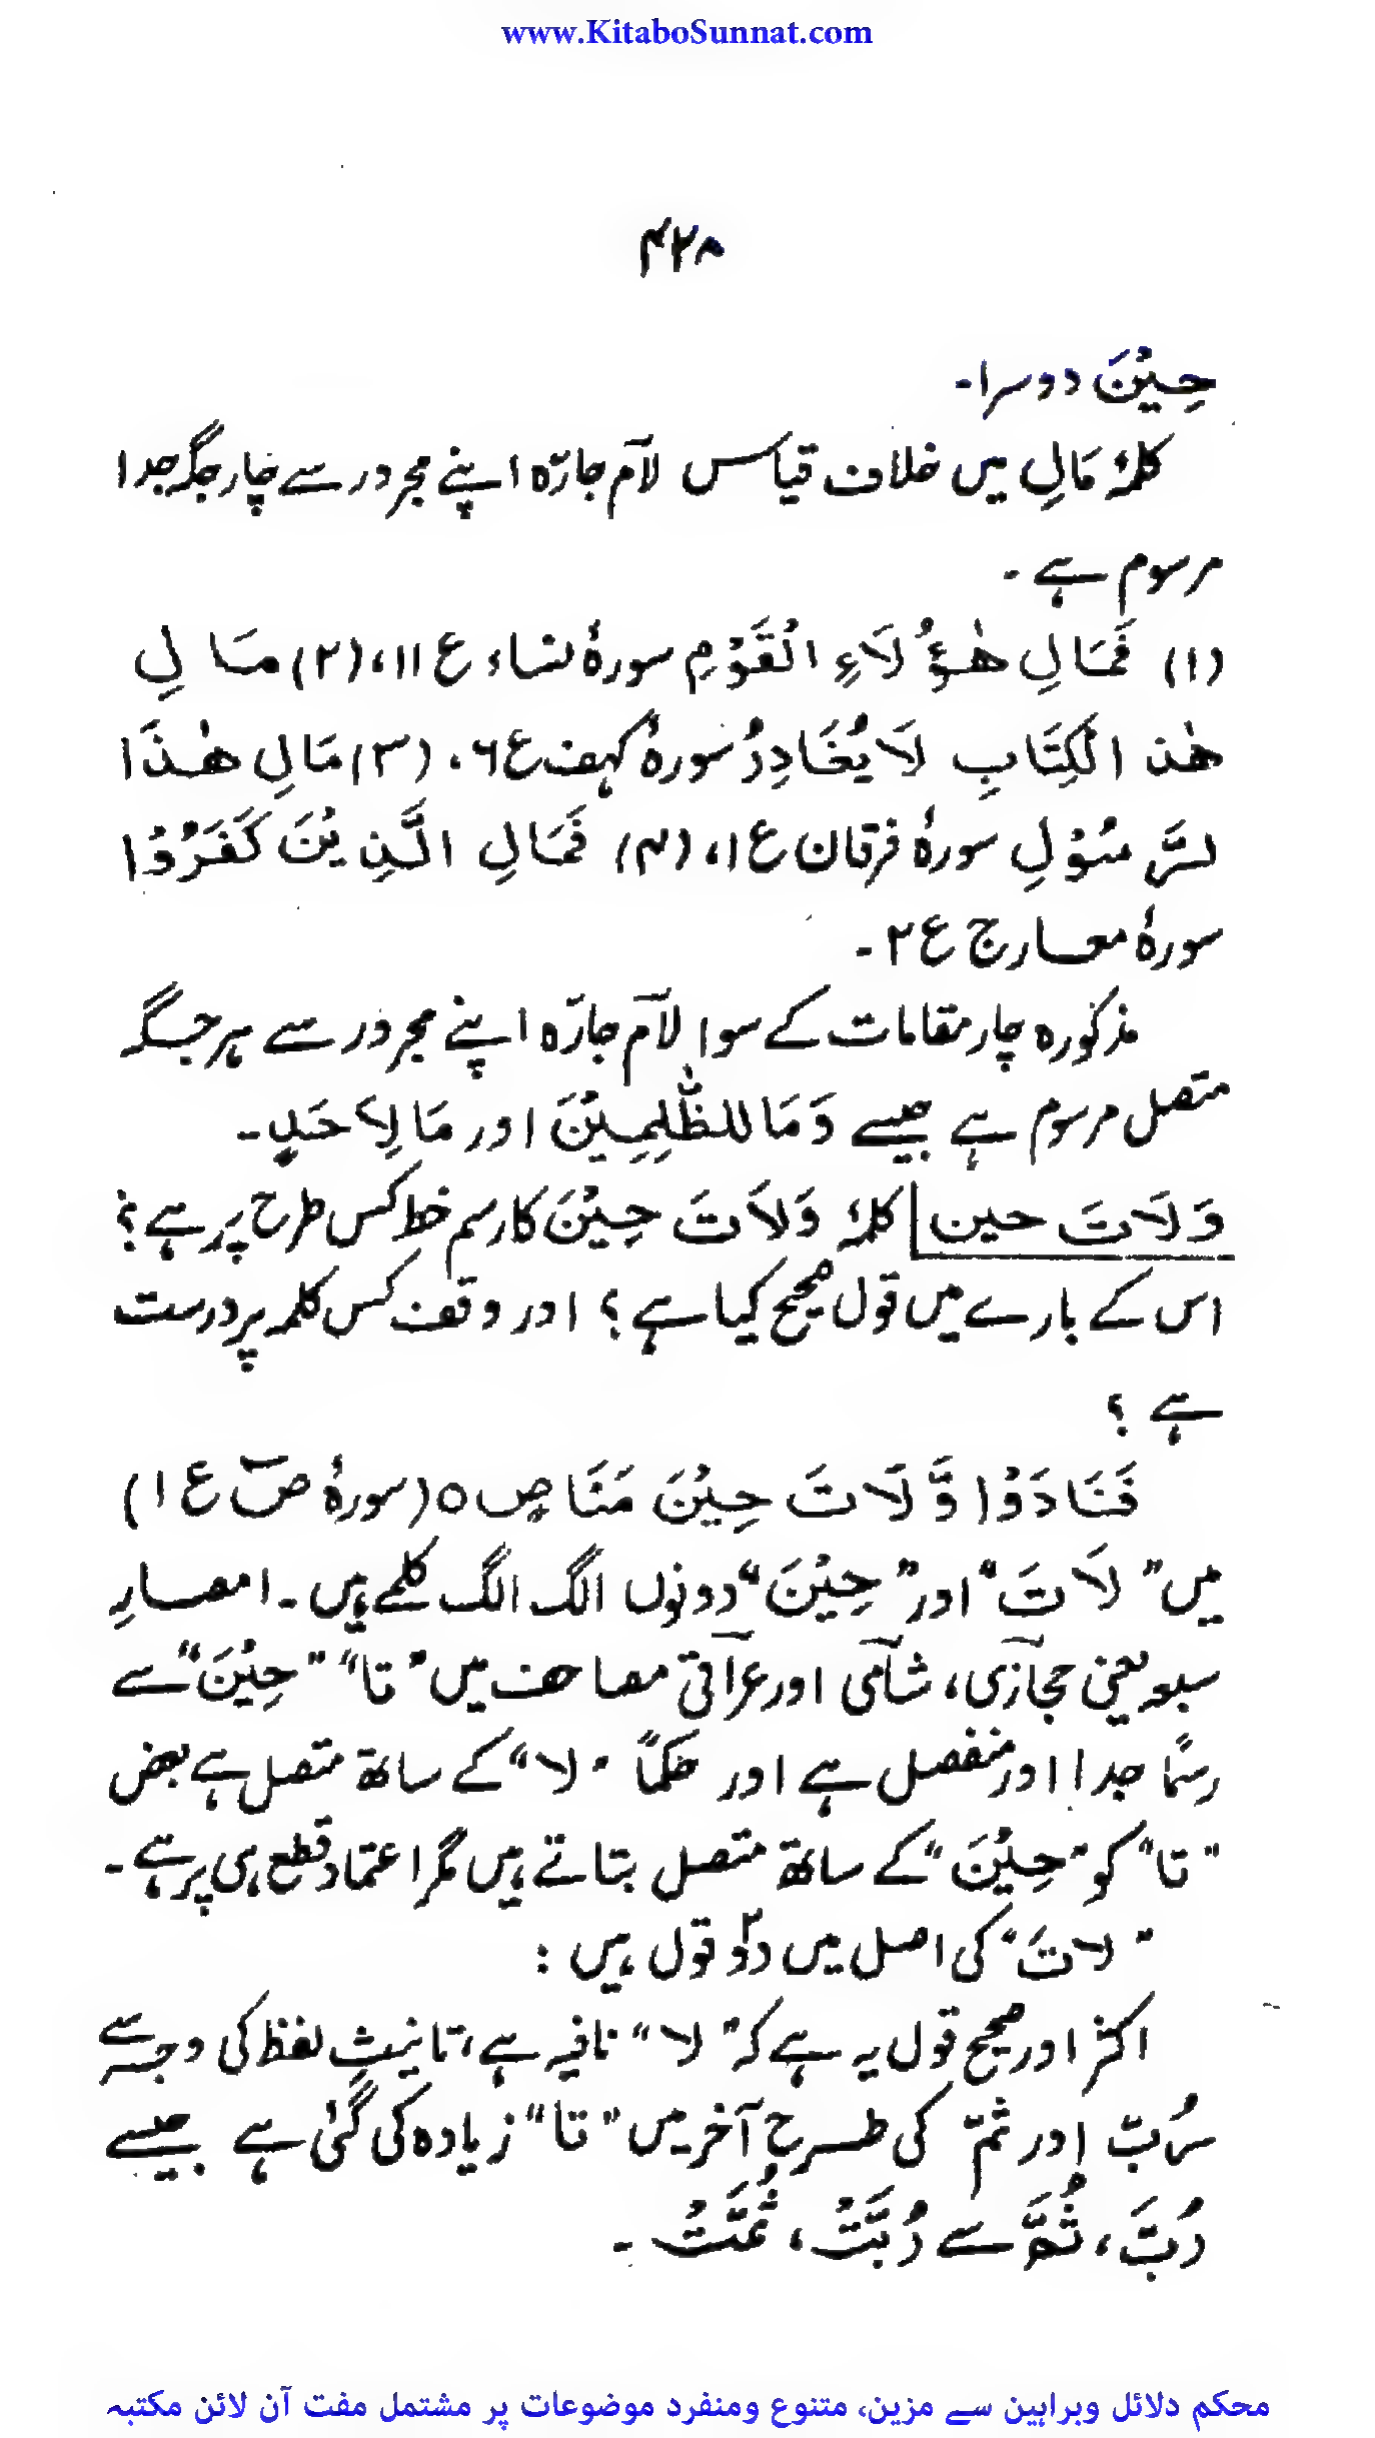 www.KitaboSunnat.com
۴۲۸
حِیْنَ دوسرا۔
کلمۂ مَالِ میں خلاف قیاس لآم جارّہ اپنے مجرور سے چار جگہ جدا
مرسوم ہے ۔
(۱) فَمَالِ ھٰؤُلَاءِ الْقَوْمِ سورۂ نساء ع ۱۱، (۲) مَالِ
ھٰذ الْکِتَابِ لَا یُغَادِرُ سورۂ کہف ع ۶، (۳) مَالِ ھٰذَا
لرَّسُوْلِ سورۂ فرقان ع ۱، (۴) فَمَالِ الَّذِیْنَ کَفَرُوْا
سورۂ معارج ع ۲ ۔
مذکورہ چار مقامات کے سوا لآم جارّہ اپنے مجرور سے ہر جگہ
متصل مرسوم ہے جیسے وَمَا للظّٰلِمِیْنَ اور مَا لِاَحَدٍ ۔
وَلَاتَ حین کلمۂ وَلَاتَ حِیْنَ کا رسم خط کس طرح پَر ہے؟
اس کے بارے میں قول صحیح کیا ہے؟ اور وقف کس کلمہ پر درست
ہے ؟
فَنَادَوْا وَّلَاتَ حِیْنَ مَنَاصٍ ○ (سورۂ صٓ ع ۱)
میں ”لَاتَ“ اور ”حِیْنَ“ دونوں الگ الگ کلمے ہیں ۔ امصارِ
سبعہ یعنی حجآزی، شآمی اور عرآقی مصاحف میں ”تا“ ”حِیْنَ“ سے
رسمًا جدا اور منفصل ہے اور حکمًا ”لا“ کے ساتھ متصل ہے بعض
”تا“ کو ”حِیْنَ“ کے ساتھ متصل بتاتے ہیں مگر اعتماد قطع ہی پر ہے ۔
”لاتَ“ کی اصل میں دو۲ قول ہیں :
اکثر اور صحیح قول یہ ہے کہ ”لا“ نافیہ ہے، تانیثِ لفظ کی وجہ سے
رُبّ اور ثمّ کی طرح آخر میں ”تا“ زیادہ کی گئی ہے جیسے
رُبَّ، ثُمَّ سے رُبَّتْ، ثُمَّتْ ۔
محکم دلائل وبراہین سے مزین، متنوع ومنفرد موضوعات پر مشتمل مفت آن لائن مکتبہ